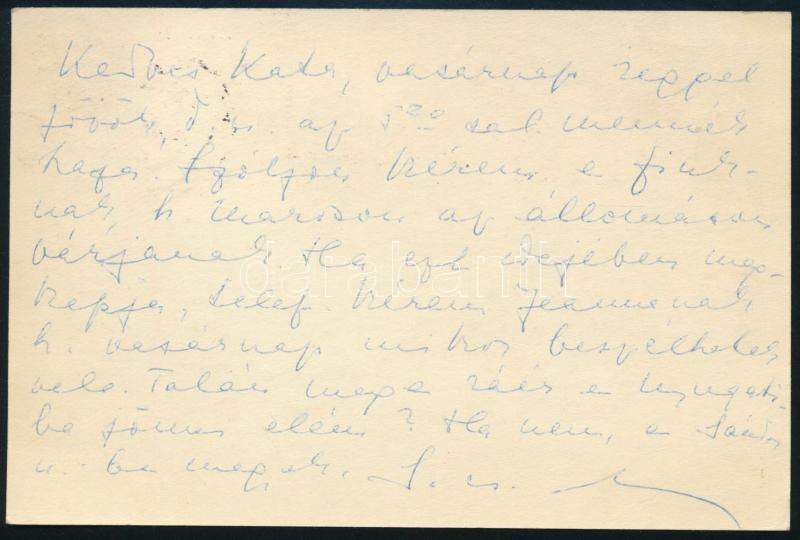 Kedves Kata, vasárnap reggel
jövök, d.u. az 5 20 -sal mennék
haza. Szóljon kérem a fiúk-
nak, h. Maroson az állomáson
várjanak. Ha ezt idejében meg-
kapja, telef. kérem Jeannenak
h. vasárnap mikor beszélhetek
vele. Talán maga ráér a Nyugati-
ba jönni elém? Ha nem, a Sándor
u.-ba megyek.
darabanth